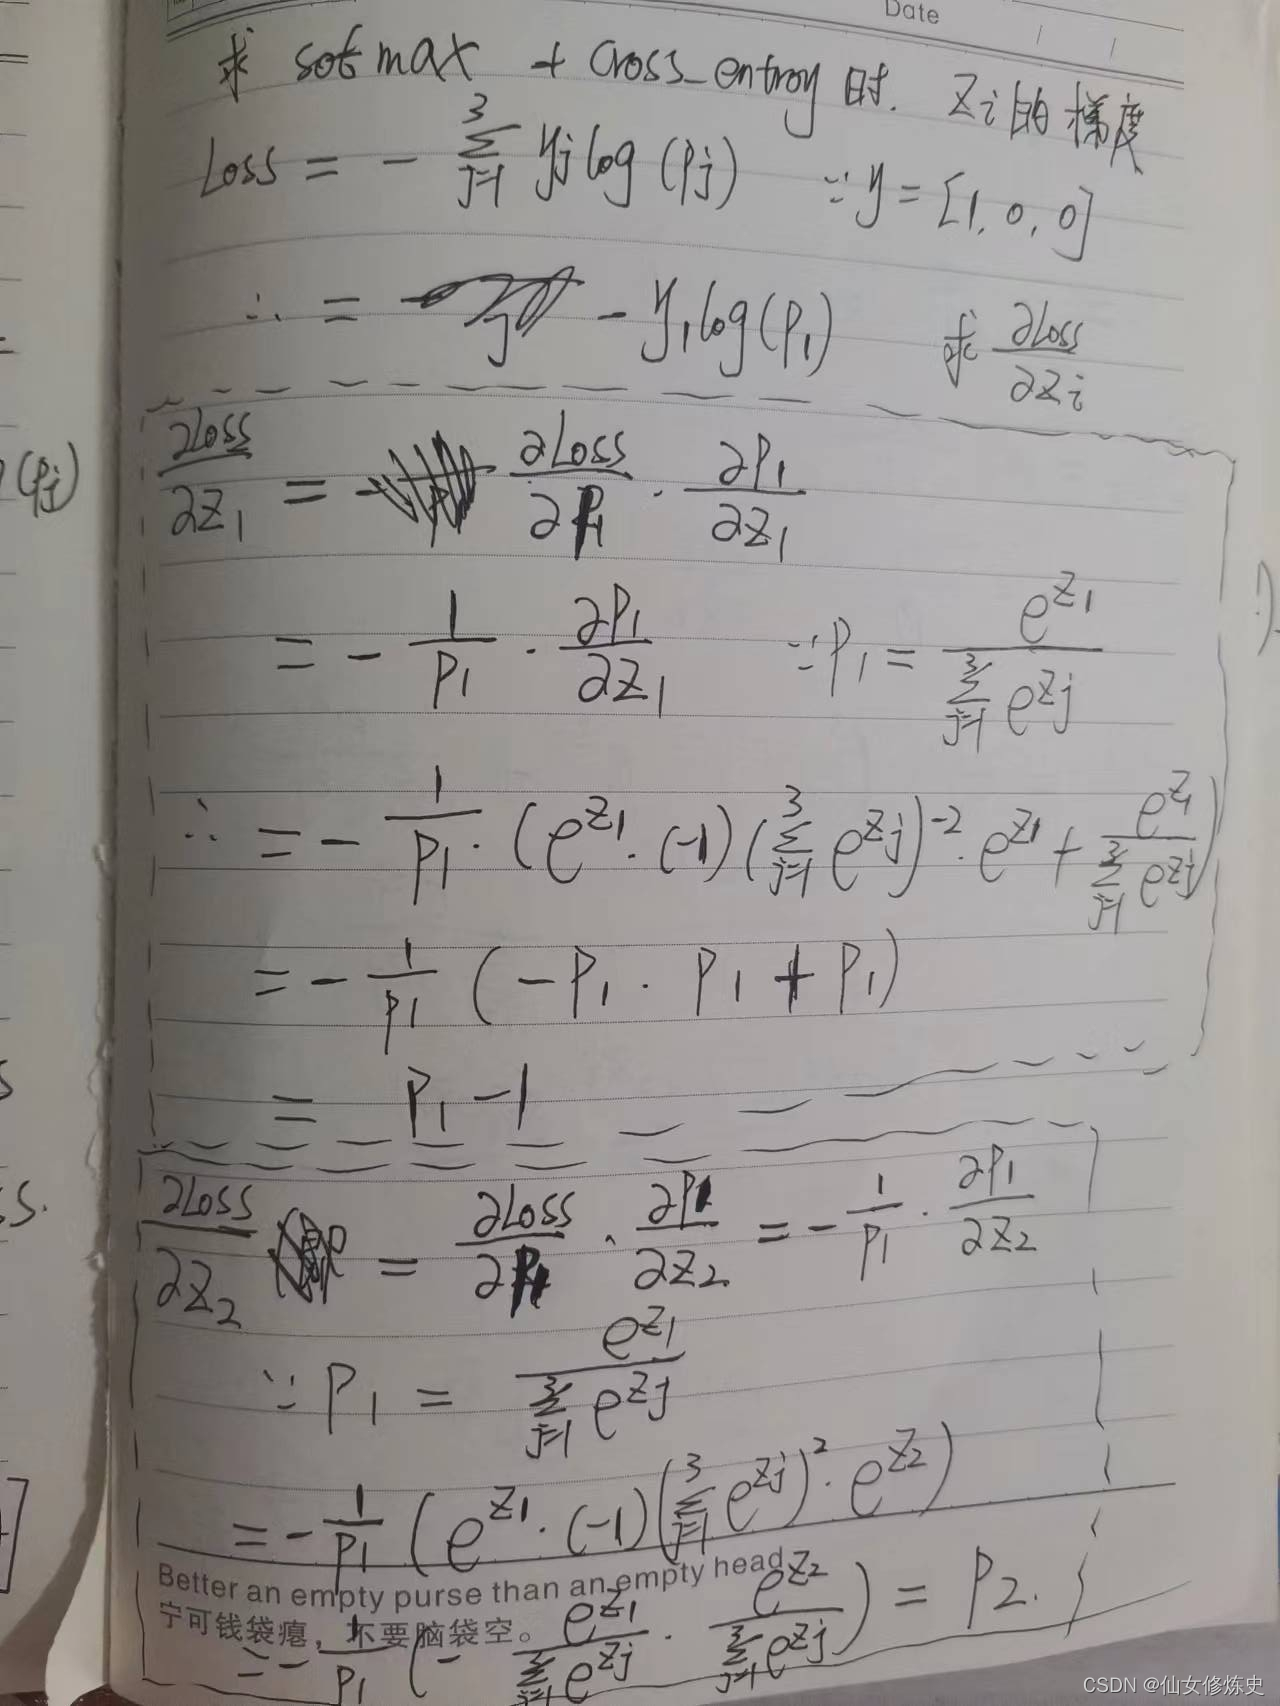 Date
求 sofmax + Cross_entroy 时. Zi的梯度
Loss = - ∑_{j=1}^{3} yj log (Pj) ∵ y = [1, 0, 0]
∴ = - y₁log(P₁) 求 ∂Loss/∂Zi
(Pj)
∂Loss/∂Z₁ = ∂Loss/∂P₁ · ∂P₁/∂Z₁
= - 1/P₁ · ∂P₁/∂Z₁ ∵ P₁ = e^{Z₁} / ∑_{j=1}^{3} e^{Zj}
∴ = - 1/P₁ · (e^{Z₁} · (-1) (∑_{j=1}^{3} e^{Zj})^{-2} · e^{Z₁} + e^{Z₁} / ∑_{j=1}^{3} e^{Zj})
= - 1/P₁ (-P₁ · P₁ + P₁)
= P₁ - 1
∂Loss/∂Z₂ = ∂Loss/∂P₁ · ∂P₁/∂Z₂ = - 1/P₁ · ∂P₁/∂Z₂
∵ P₁ = e^{Z₁} / ∑_{j=1}^{3} e^{Zj}
= - 1/P₁ (e^{Z₁} · (-1) (∑_{j=1}^{3} e^{Zj})^{2} · e^{Z₂})
Better an empty purse than an empty head
宁可钱袋瘪，不要脑袋空。
= - 1/P₁ (- e^{Z₁} / ∑_{j=1}^{3} e^{Zj} · e^{Z₂} / ∑_{j=1}^{3} e^{Zj}) = P₂.
CSDN @仙女修炼史